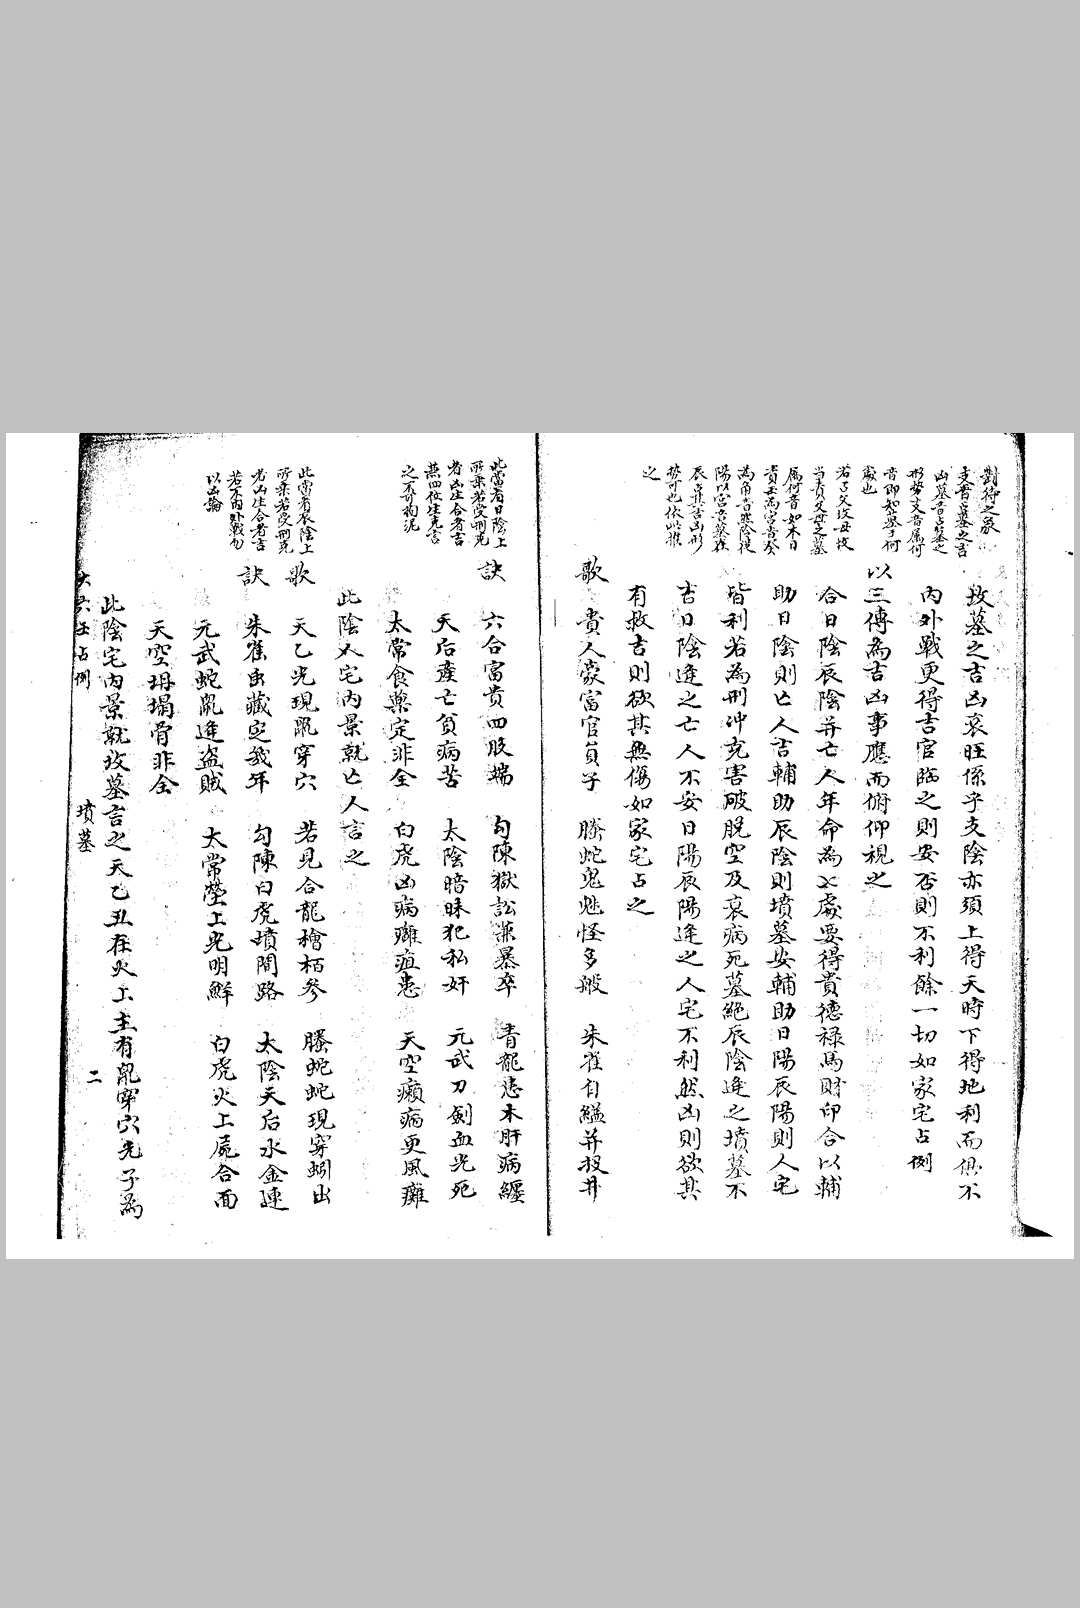 對待之象
支音是墓之吉
凶墓音占墓之
形勢支音属何
音即知葬于何
處也
若占父母攻
当責父母之墓
属何音如木日
責壬為宮音癸
為角音照陰從
陽以宮音墓在
辰上其吉凶形
勢可也依此推
之
坟墓之吉凶衰旺係乎支陰亦須上得天時下得地利而俱不
內外戰更得吉官臨之則安否則不利餘一切如家宅占例
以三傳為吉凶事應而俯仰視之
合日陰辰陰并亡人年命為七處要得貴德禄馬財印合以輔
助日陰則亡人吉輔助辰陰則墳墓安輔助日陽辰陽則人宅
皆利若為刑冲克害破脫空及衰病死墓絕辰陰逢之墳墓不
吉日陰逢之亡人不安日陽辰陽逢之人宅不利然凶則欲其
有救吉則欲其無傷如家宅占之
歌 貴人蒙富官員子 螣蛇鬼魅怪多般 朱雀自縊并投井
此當看日陰上
所乘若受刑克
者凶生合者吉
無四位生克言
之不可拘泥
訣 六合富貴四肢端 勾陳獄訟兼暴卒 青龍患木肝病纏
天后產亡貧病苦 太陰暗昧犯私奸 元武刀劍血光死
太常食藥定非全 白虎凶病癱疽患 天空癩病更風癱
此陰人宅內景就亡人言之
此當看辰陰上
所乘若受刑克
者凶生合者吉
若不內外戰勿
以凶論
歌 天乙光現鼠穿穴 若見合龍檜栢參 螣蛇蛇現穿蚓出
訣 朱雀虫藏定幾年 勾陳白虎墳間路 太陰天后水金連
元武蛇鼠逢盗賊 太常瑩上光明鮮 白虎火上屍合面
天空坍塌骨非全
此陰宅內景就坟墓言之天乙丑在火上主有鼠穿穴先子為
大六壬占例 墳墓 二